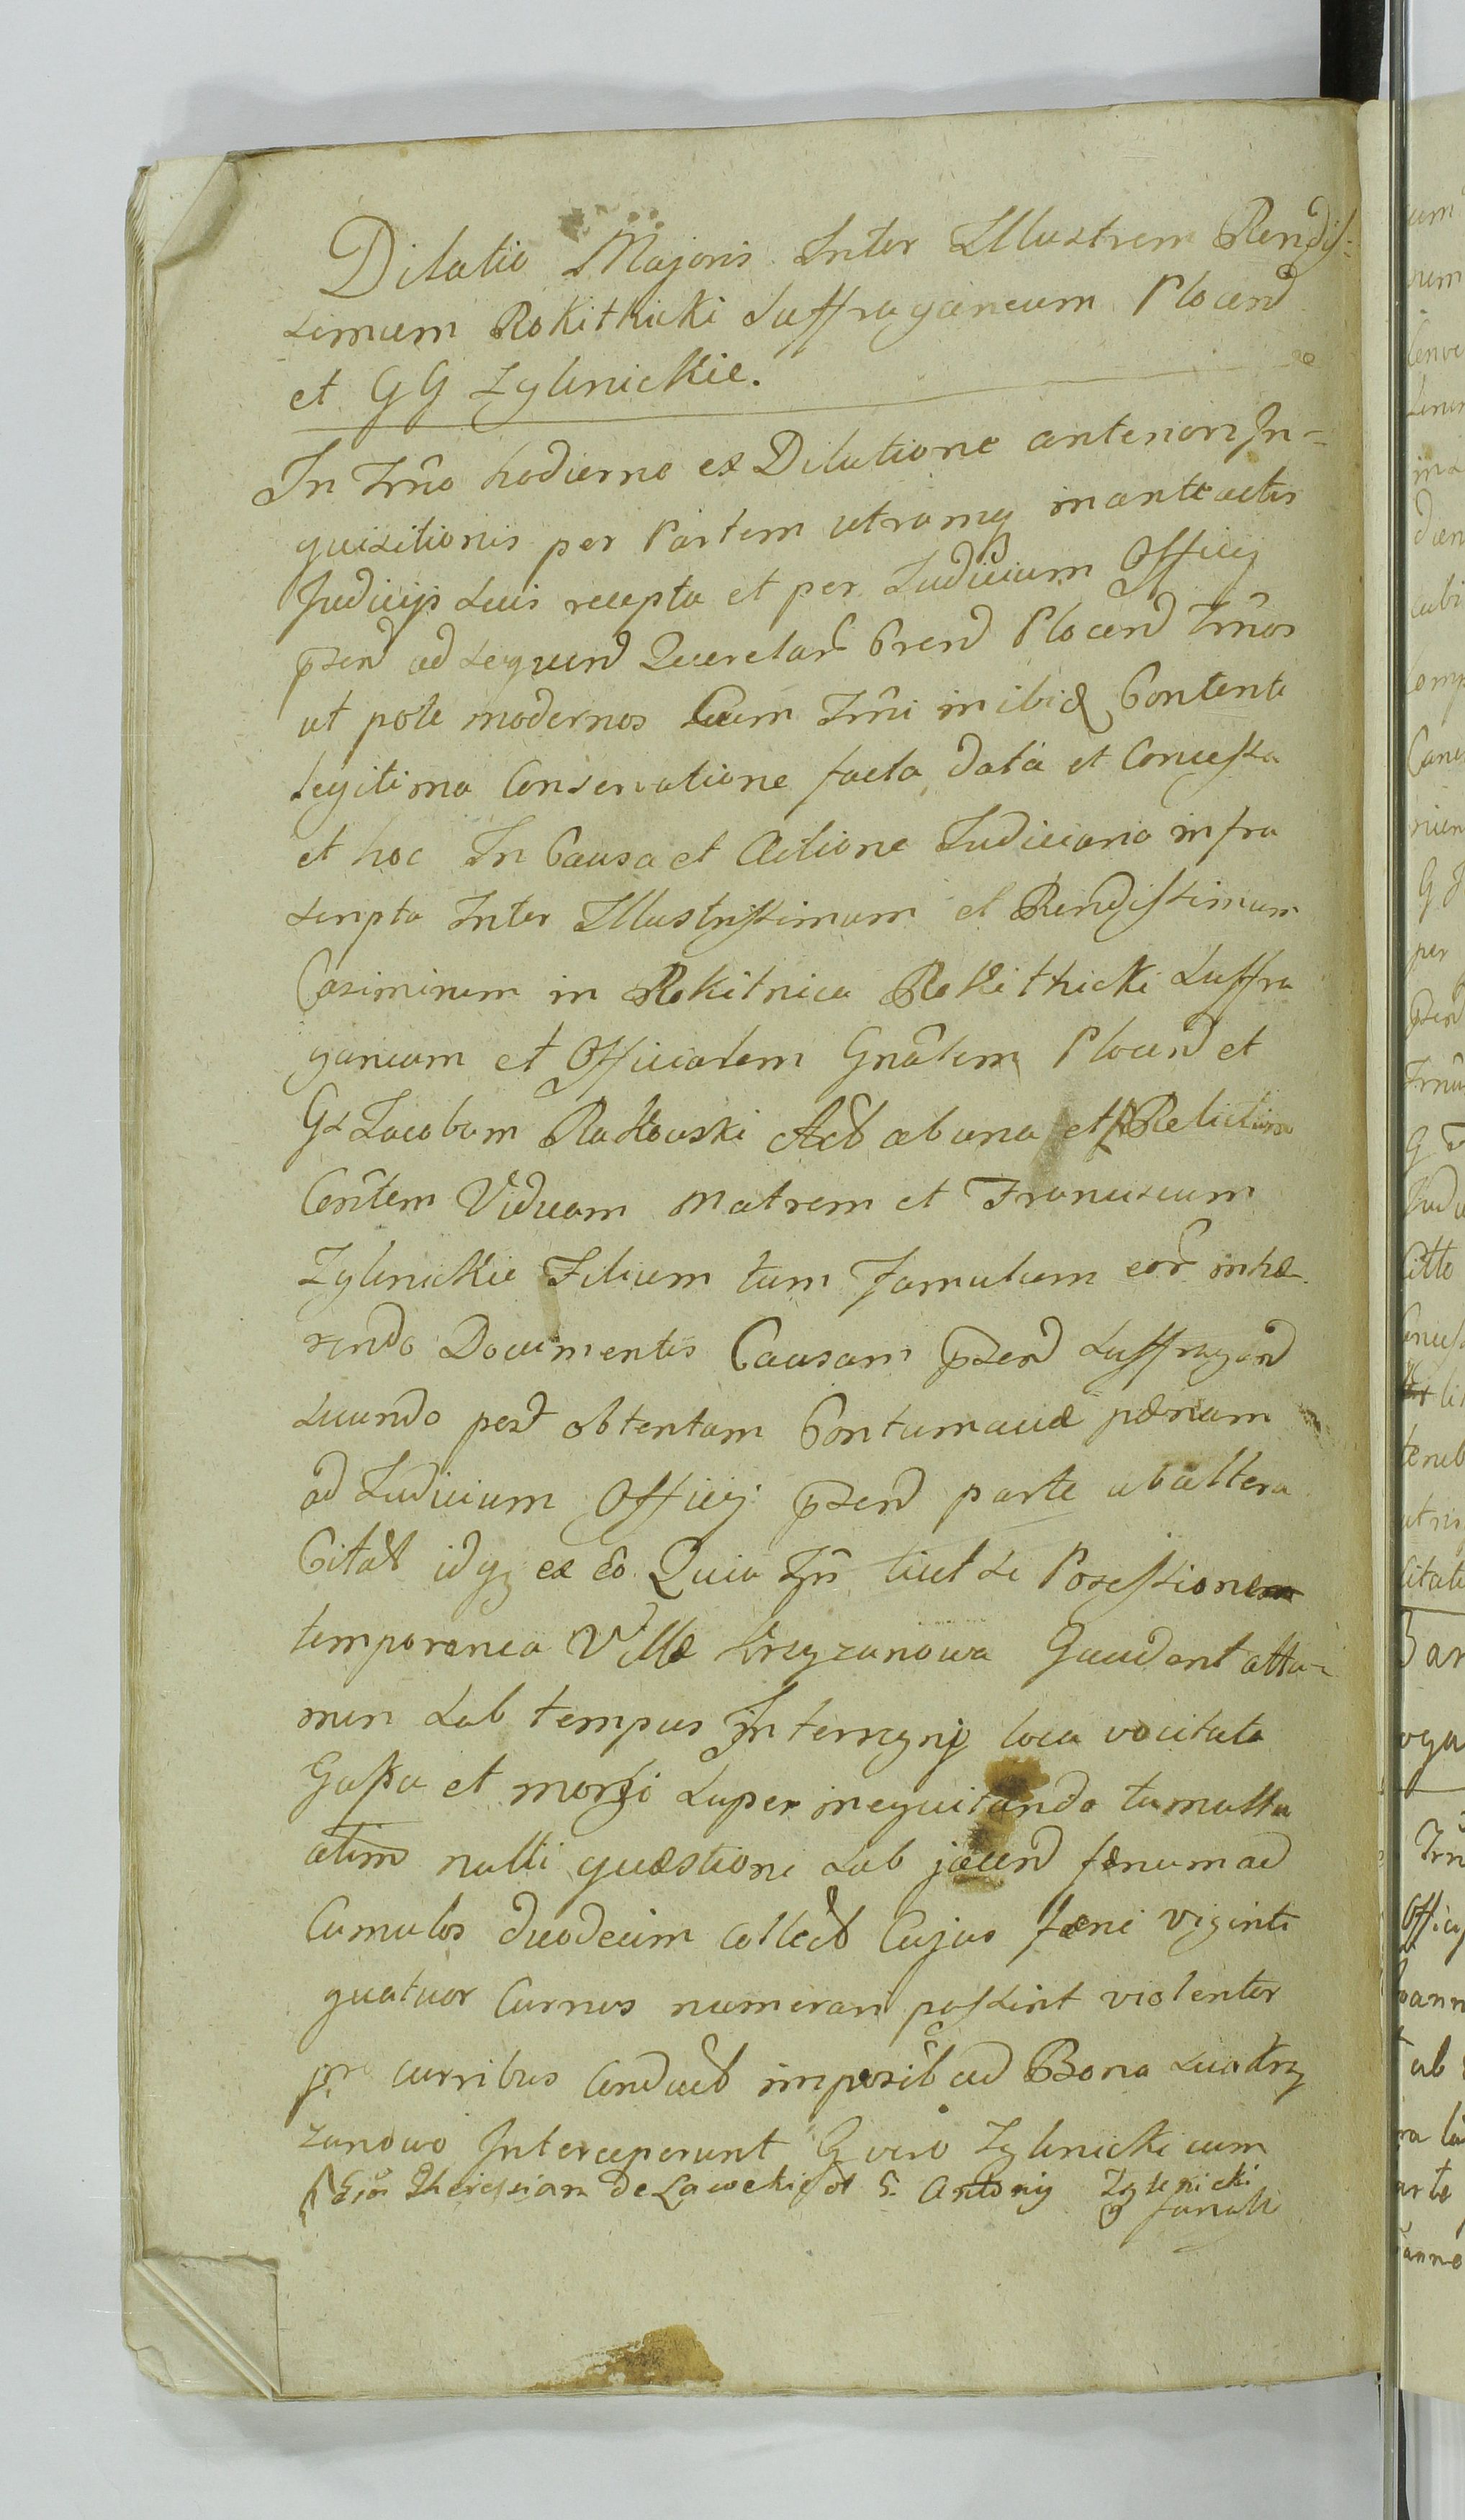 Dilatio Majoris Inter Illustrem Rendis-
simum Rokitnicki Suffraganeum Plocen
et GG Zylinickie.
In Trno hodierno ex Dilatione anterioris In-
quisitionis per Partem utramq in anteactis
Judicijs suis recepta et per Judicium Officij
psen ad sequen Querelar Cren Plocen Trnos
ut pote modernos Cum Trni inibiq Contenti
legitima Conservatione facta data et Concessa
et hoc In Causa et Actione Judiciaria infra
scripta Inter Illustrissimum et Rendissimum
Casimirum in Rokitnica Rokithicki Suffra
ganeum et Officialem Gnalem Plocen et
Gs Jacobum Rakowski Act ab una et Relictam
Contem Viduam Matrem et Franciscum
Zylinickie Filium tum famulum eor inhæ-
rendo Documentis Causam psen Suffragan
Secundo post obtentam Contumaciæ pænam
ad Judicium Officij psen parte ab altera
Citat idq ex eo Quia Trn licet se Possessione
temporanea Villæ Krzyzanowa Gaudent atta-
men sub tempus Interregnij loca vocitata
Gaska et morgi super inequitando tumultu
atim nulli quæstioni sub jacen fænum ad
Cumulos duodecim collect Cujus fæni viginti
quatuor Currus numerari possint violenter
pr curribus conduct imposit ad Bona sua Krzy
zanowo Interceperunt G vero Zylinicki cum
Ejo Theresiam de Lawekich et S. Antonij Zylenicki
famuli